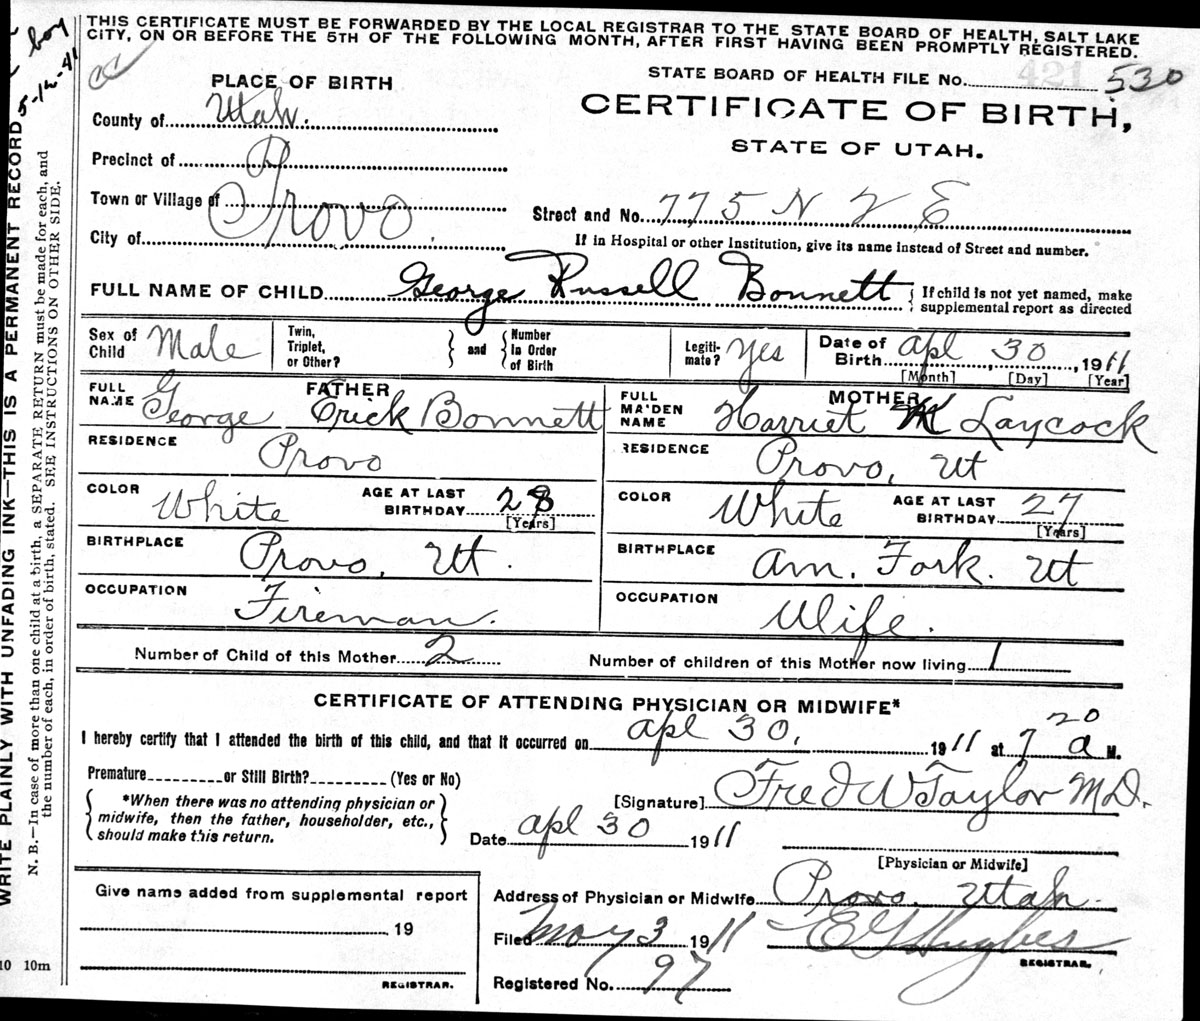 THIS CERTIFICATE MUST BE FORWARDED BY THE LOCAL REGISTRAR TO THE STATE BOARD OF HEALTH, SALT LAKE
CITY, ON OR BEFORE THE 5TH OF THE FOLLOWING MONTH, AFTER FIRST HAVING BEEN PROMPTLY REGISTERED.
boy
5-12-41
WRITE PLAINLY WITH UNFADING INK—THIS IS A PERMANENT RECORD
N. B.—In case of more than one child at a birth, a SEPARATE RETURN must be made for each, and
the number of each, in order of birth, stated. SEE INSTRUCTIONS ON OTHER SIDE.
10 10m
PLACE OF BIRTH
STATE BOARD OF HEALTH FILE No. 421 530
CERTIFICATE OF BIRTH,
STATE OF UTAH.
County of Utah.
Precinct of P
Town or Village of
Provo
City of
Street and No. 775 N 2 E
If in Hospital or other Institution, give its name instead of Street and number.
FULL NAME OF CHILD George Russell Bonnett { If child is not yet named, make
supplemental report as directed
Sex of Child Male
Twin, Triplet, or Other? } and { Number in Order of Birth
Legiti-mate? Yes
Date of Birth Apl 30, 1911
[Month] [Day] [Year]
FATHER
FULL NAME George Erick Bonnett
RESIDENCE Provo
COLOR White AGE AT LAST BIRTHDAY 28 [Years]
BIRTHPLACE Provo, Ut.
OCCUPATION Fireman.
MOTHER
FULL MAIDEN NAME Harriet M Laycock
RESIDENCE Provo, Ut
COLOR White AGE AT LAST BIRTHDAY 27 [Years]
BIRTHPLACE Am. Fork. Ut
OCCUPATION Wife.
Number of Child of this Mother 2 Number of children of this Mother now living 1
CERTIFICATE OF ATTENDING PHYSICIAN OR MIDWIFE*
I hereby certify that I attended the birth of this child, and that it occurred on Apl 30, 1911 at 7 20 a M.
Premature or Still Birth? (Yes or No)
{ *When there was no attending physician or
midwife, then the father, householder, etc.,
should make this return. }
[Signature] Fred W Taylor MD.
Date Apl 30 1911
[Physician or Midwife]
Give name added from supplemental report
19
REGISTRAR.
Address of Physician or Midwife Provo, Utah.
Filed May 3 1911 E G Hughes
REGISTRAR.
Registered No. 97